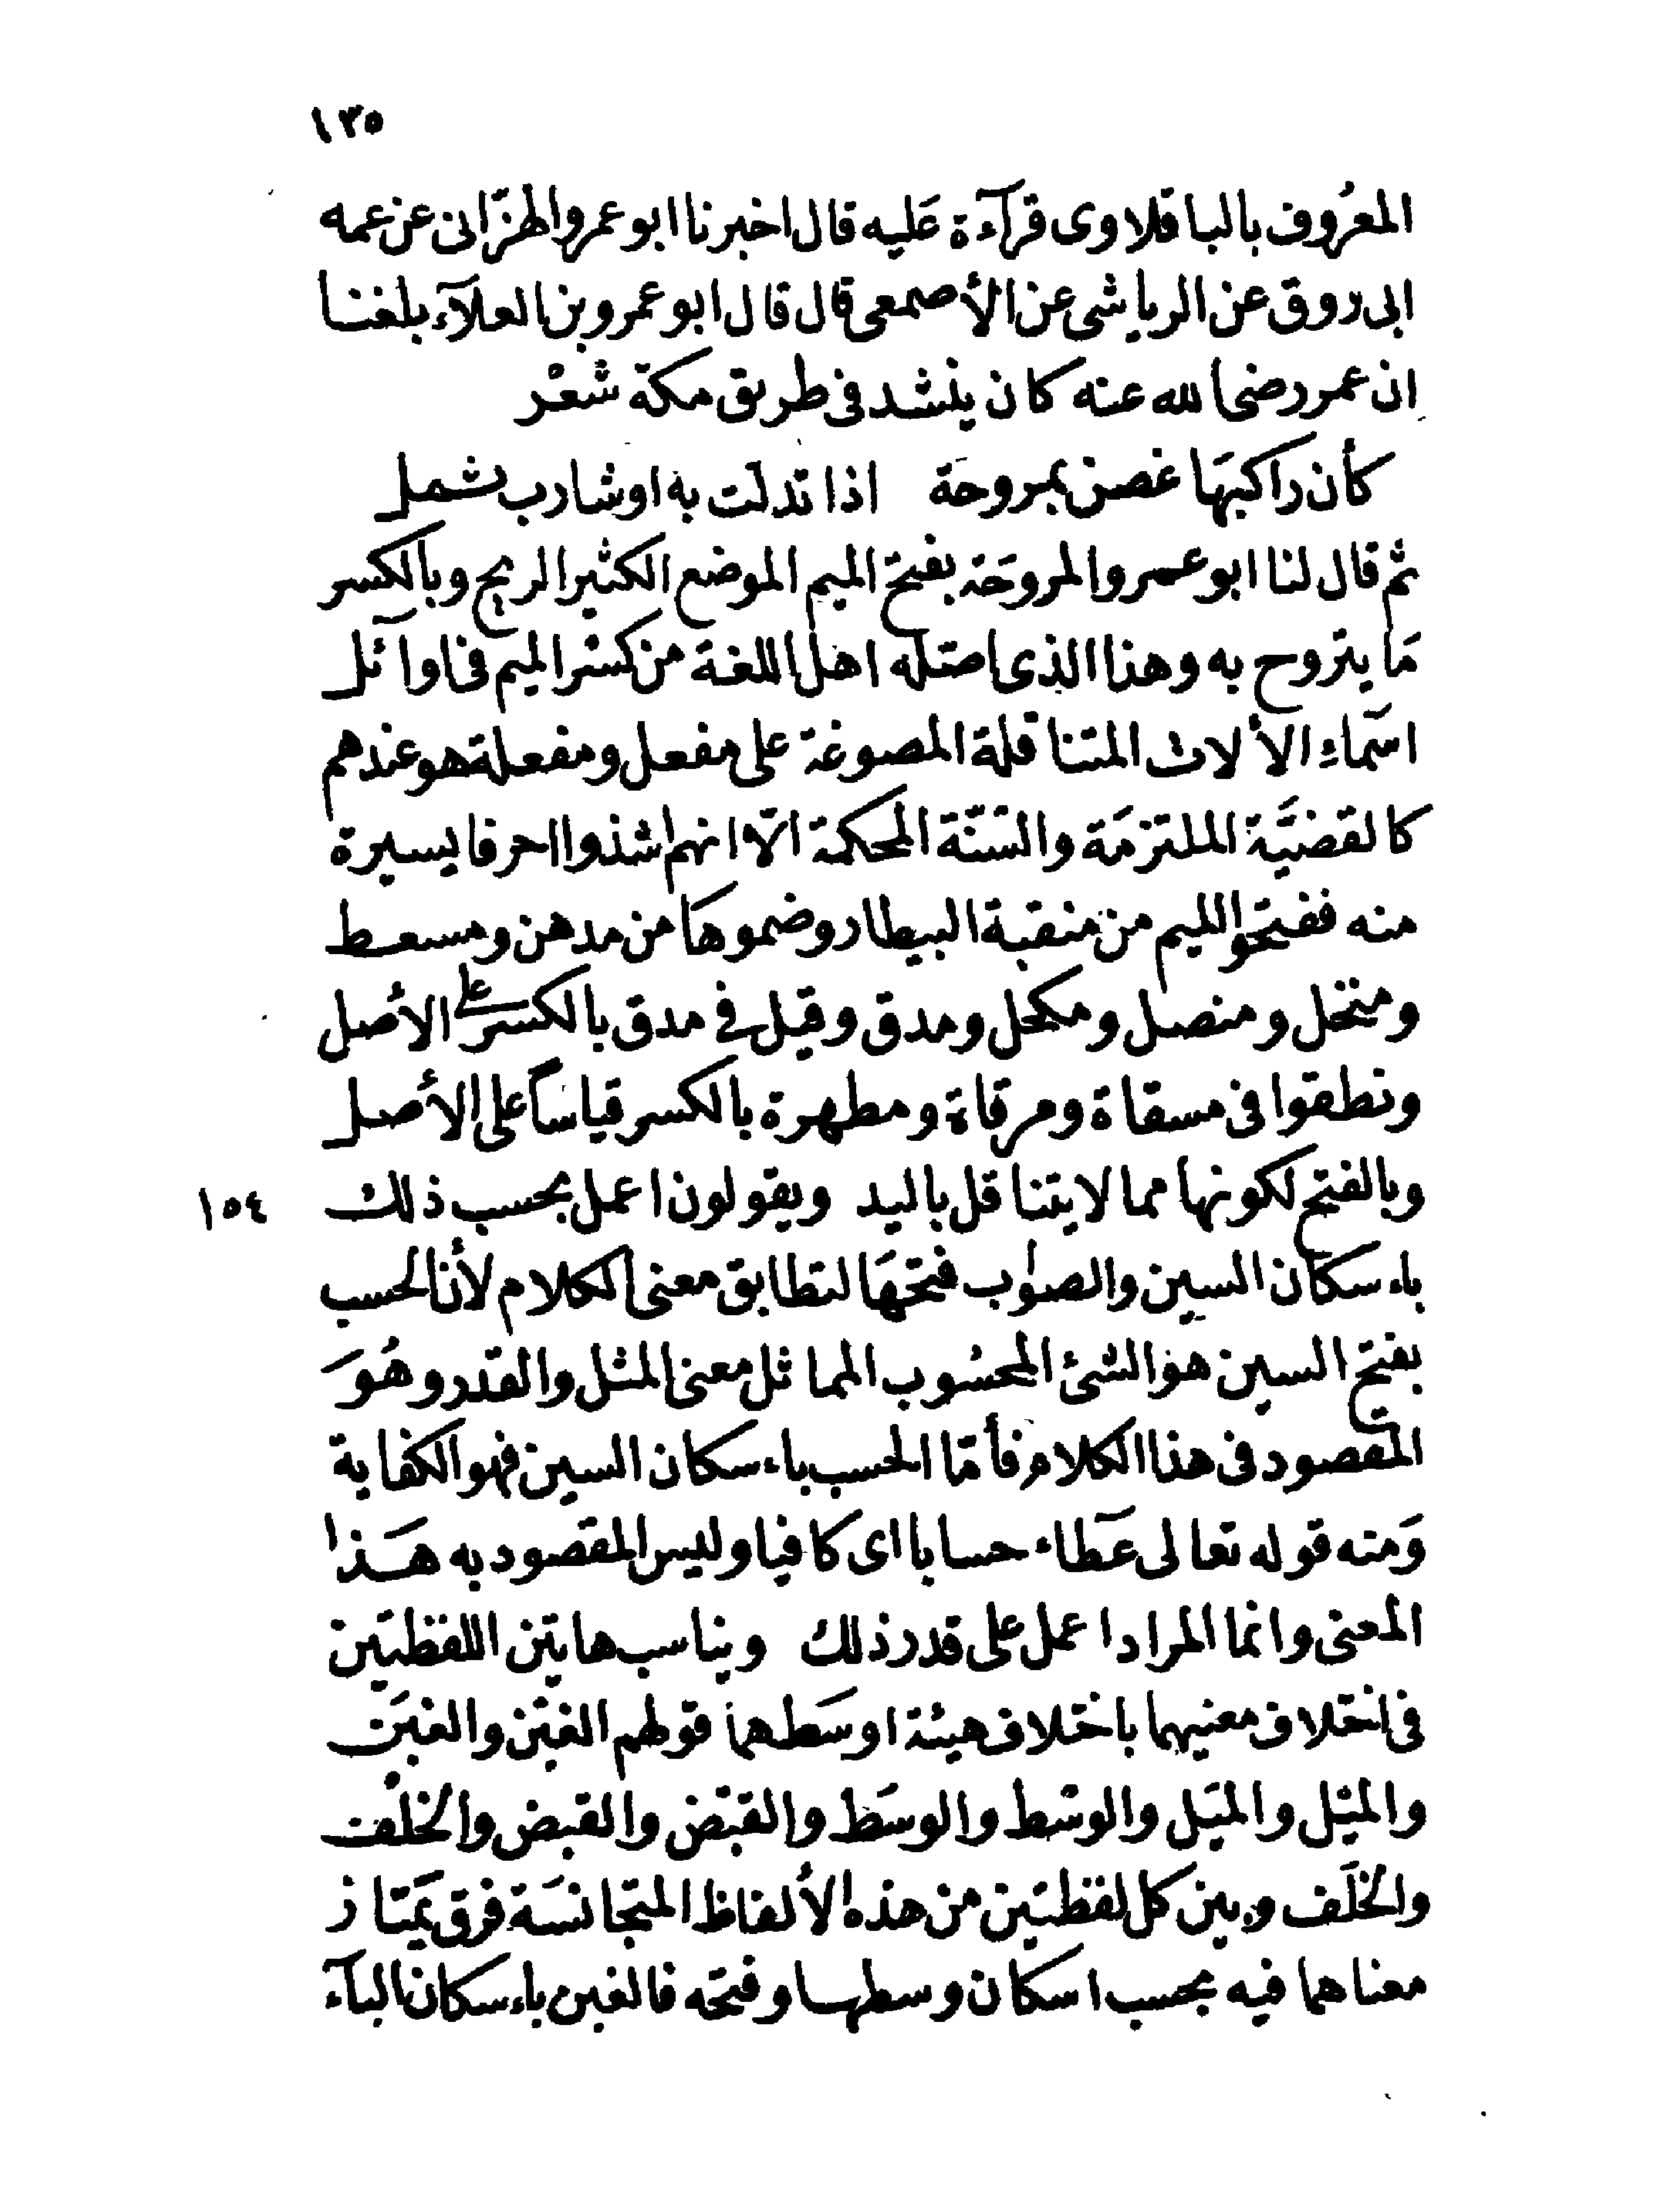 ١٣٥
المعرُوف بالباقلاوى قرآءة عَليه قال اخبرنا ابو عمرو الهزّانى عن عمه
ابى روق عن الرياشى عن الأصمعى قال قال ابو عمرو بن العلآء بلغنا
ان عمر رضى الله عنه كان ينشد فى طريق مكة شعْر
كأن راكبهَا غصن بمروحَة اذا تدلّت به او شارب ثمل
ثم قال لنا ابو عمرو المروحَة بفتح الميم الموضع الكثير الريح وبالكسر
مَا يتروح به وهذا الذى اصّله اهل اللغة من كسْر الميم فى اوآئل
اسمآءِ الألات المتناقلة المصوغة على مفعل ومفعلة هو عندهم
كالقضيَّة الملتزمَة والسّنّة المحكمة الّا انهم اشذوا احرفا يسيرة
منه ففتحوا الميم من منقبة البيطار وضموهَا من مدهن ومسعط
ومنخل ومنصل ومكحل ومدق وقيل فى مدق بالكسر على الأصل
ونطقوا فى مسقاة ومرقاة ومطهرة بالكسر قياسًا على الأصل
وبالفتح لكونها مما لا يتناقل باليد ويقولون اعمل بحسب ذلك ١٥٤
باءسكان السين والصوٰاب فتحهَا لتطابق معنى الكلام لأن الحسب
بفتح السين هو الشئ المحسُوب المماثل معنى المثل والقدر وهُوَ
المقصود فى هذا الكلام فأمّا الحسب باءسكان السين فهو الكفاية
وَمنه قوله تعالى عَطآء حسابا اى كافيا وليس المقصود به هَذا
المعنى وانما المراد اعمل على قدر ذلك ويناسب هاتين اللفظتين
فى اختلاف معنيهما باختلاف هيئة اوسَطهما قولهم الغبْن والغبَن
والميْل والميَل والوسْط والوسَط والقبْض والقبَض والخلْف
والخلَف وبين كل لفظتين من هذه الألفاظ المتجانسَة فرق يَمتاز
معناهما فيه بحسب اسكان وسطها وفتحه فالغبن باءسكان البآء